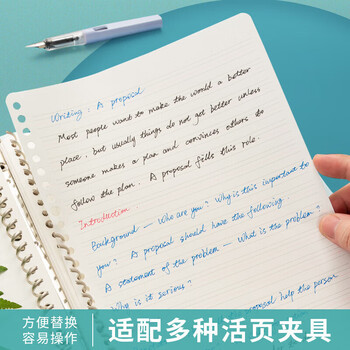 Writing : A proposal
Most people want to make the world a better
place, but usually things do not get better unless
someone makes a plan and convinces others to
follow the plan. A proposal fills this role.
Introduction
Background — Who are you? Why is this important to
you? A proposal should have the following
A statement of the problem — What is the problem?
Why is it serious?
proposal help the person
方便替换
容易操作
适配多种活页夹具